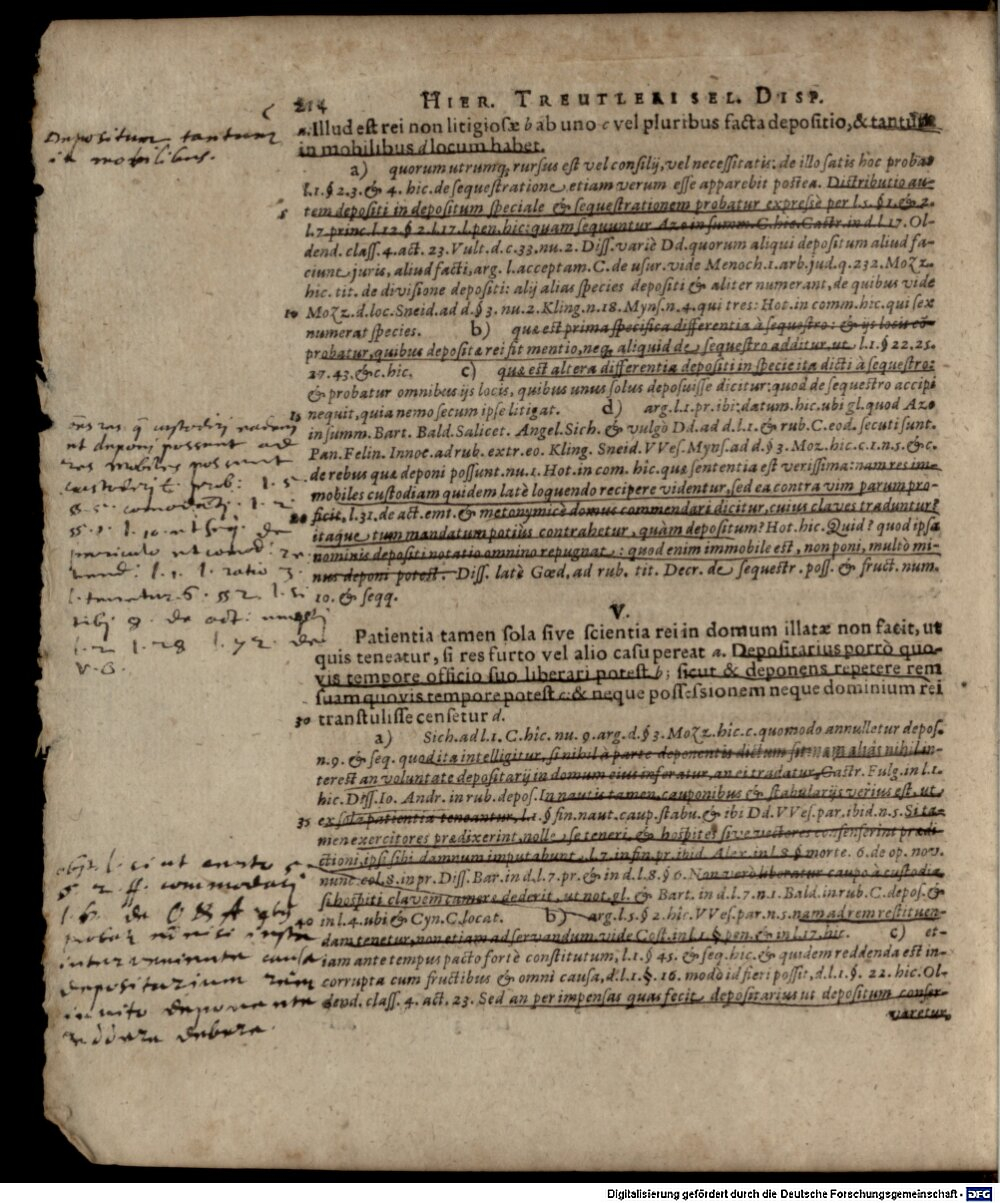 214 HIER. TREUTLERI SEL. DISP.
a. Illud est rei non litigiosæ b ab uno c vel pluribus facta depositio, & tantum
in mobilibus d locum habet.
a) quorum utrumq; rursus est vel consilij, vel necessitatis: de illo satis hoc probat
l.1.§ 2.3.& 4. hic. de sequestratione etiam verum esse apparebit postea. Distributio au-
5 tem depositi in depositum speciale & sequestrationem probatur expresse per l.5. §1.& 2.
l.7 princ.l.12.§ 2.l.17.l.pen.hic: quam sequuntur Azo in summ.C.hic.Castr.in d.l.17. Ol-
dend. class. 4. act. 23. Vult. d. c. 33. nu. 2. Diss. variè Dd. quorum aliqui depositum aliud fa-
ciunt juris, aliud facti, arg. l. acceptam. C. de usur. vide Menoch. 1. arb. jud. q. 232. Mozz.
hic. tit. de divisione depositi: alij alias species depositi & aliter numerant, de quibus vide
10 Mozz. d. loc. Sneid. ad d. § 3. nu. 2. Kling. n. 18. Myns. n. 4. qui tres: Hot. in comm. hic. qui sex
numerat species. b) quæ est prima specifica differentia à sequestro: & ijs locis cō-
probatur, quibus deposita rei fit mentio, neq; aliquid de sequestro additur, ut l.1.§ 22.25.
27.43.& c. hic. c) quæ est altera differentia depositi in specie ita dicti à sequestro:
& probatur omnibus ijs locis, quibus unus solus deposuisse dicitur: quod de sequestro accipi
15 nequit, quia nemo secum ipse litigat. d) arg. l.1. pr. ibi: datum. hic. ubi gl. quod Azo
in summ. Bart. Bald. Salicet. Angel. Sich. & vulgò Dd. ad d. l.1. & rub. C. eod. secuti sunt.
Pan. Felin. Innoc. ad rub. extr. eo. Kling. Sneid. VVes. Myns. ad d. § 3. Moz. hic. c. 1. n. 5. & c.
de rebus quæ deponi possunt. nu. 1. Hot. in com. hic. quæ sententia est verissima: nam res im-
mobiles custodiam quidem latè loquendo recipere videntur, sed ea contra vim parum pro-
20 ficit, l. 31. de act. emt. & metonymicè domus commendari dicitur, cuius claves traduntur?
itaque tum mandatum potius contrahetur, quàm depositum? Hot. hic. Quid? quod ipsa
nominis depositi notatio omnino repugnat: quod enim immobile est, non poni, multò mi-
nus deponi potest. Diss. latè Gœd. ad rub. tit. Decr. de sequestr. poss. & fruct. num.
10. & seqq.
V.
Patientia tamen sola sive scientia rei in domum illatæ non facit, ut
quis teneatur, si res furto vel alio casu pereat a. Depositarius porrò quo-
vis tempore officio suo liberari potest b; sicut & deponens repetere rem
suam quovis tempore potest c: & neque possessionem neque dominium rei
30 transtulisse censetur d.
a) Sich. ad l.1. C. hic. nu. 9. arg. d. § 3. Mozz. hic. c. quomodo annulletur depos.
n. 9. & seq. quod ita intelligitur, si nihil à parte deponentis dictum sit: nam aliàs nihil in-
terest an voluntate depositarij in domum eius inferatur, an ei tradatur, Castr. Fulg. in l.1.
hic. Diss. Io. Andr. in rub. depos. In nautis tamen, cauponibus & stabularijs verius est, ut
35 ex sola patientia teneantur, l.1. § fin. naut. caup. stabu. & ibi Dd. VVes. par. ibid. n. 5. Si ta-
men exercitores prædixerint, nolle se teneri, & hospites sive vectores consenserint prædi-
ctioni, ipsi sibi damnum imputabunt, l. 7. in fin. pr. ibid. Alex. in l. 8. § morte. 6. de op. nov.
nunc. col. 8. in pr. Diss. Bar. in d. l. 7. pr. & in d. l. 8. § 6. Non verò liberatur caupo à custodia,
si hospiti clavem cameræ dederit, ut not. gl. & Bart. in d. l. 7. n. 1. Bald. in rub. C. depos. &
40 in l. 4. ubi & Cyn. C. locat. b) arg. l. 5. § 2. hic. VVes. par. n. 5. nam ad rem restituen-
dam tenetur, non etiam ad servandum. vide Cost. in l.1. § pen. & in l. 17. hic. c) et-
iam ante tempus pacto fortè constitutum, l.1. § 45. & seq. hic. & quidem reddenda est in-
corrupta cum fructibus & omni causa, d. l.1. §. 16. modò id fieri possit, d. l.1. §. 22. hic. Ol-
dend. class. 4. act. 23. Sed an per impensas quas fecit depositarius ut depositum conser-
varetur,
Depositum tantum
in mobilibus.
ut deponi possent
res mobiles possunt
reddere debere.
Digitalisierung gefördert durch die Deutsche Forschungsgemeinschaft - DFG